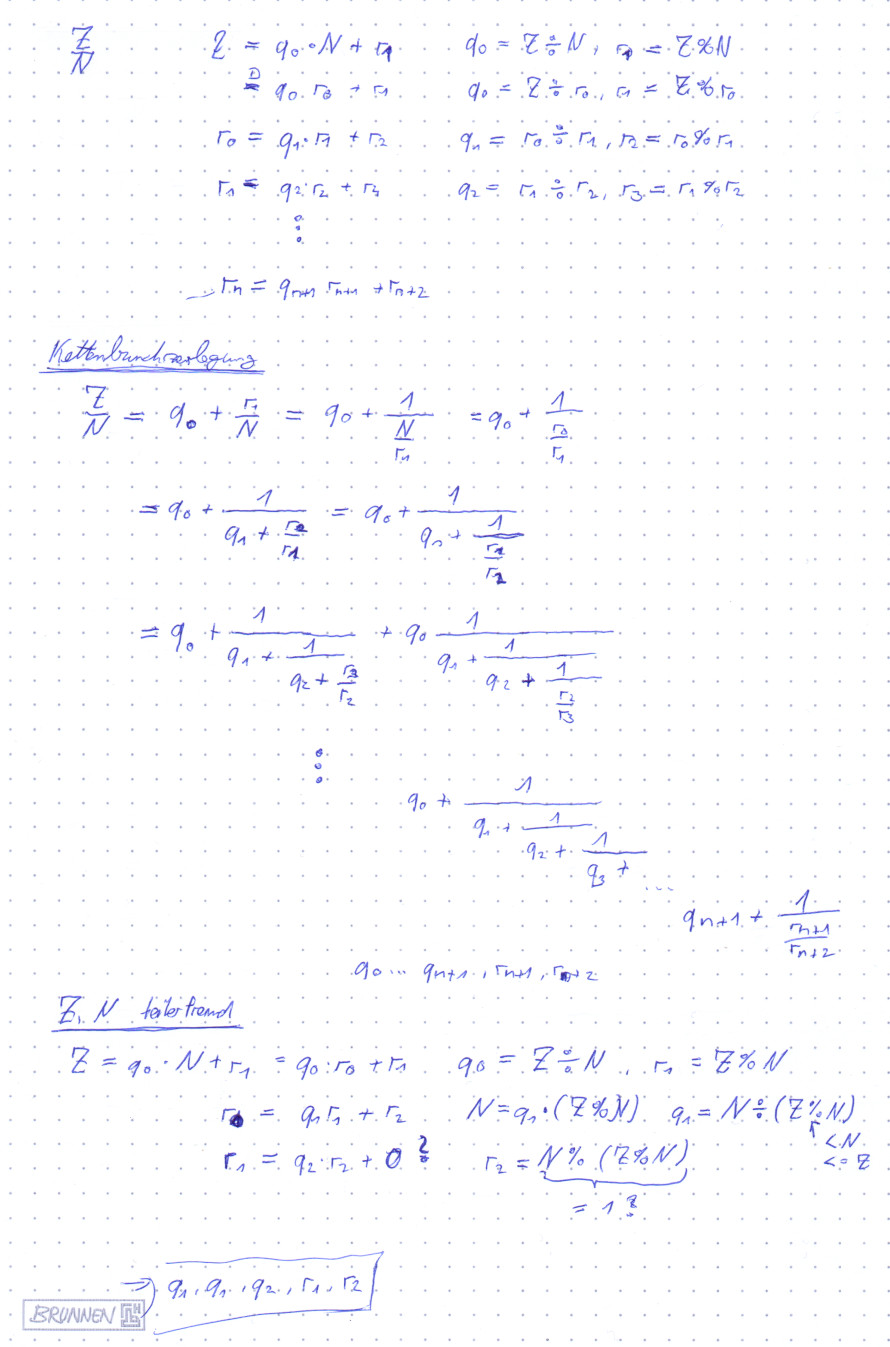 Z/N Z = q₀ · N + r₁ q₀ = Z ÷ N, r₁ = Z % N
= q₀ · r₀ + r₁ q₀ = Z ÷ r₀, r₁ = Z % r₀
r₀ = q₁ · r₁ + r₂ q₁ = r₀ ÷ r₁, r₂ = r₀ % r₁
r₁ = q₂ · r₂ + r₃ q₂ = r₁ ÷ r₂, r₃ = r₁ % r₂
⋮
rₙ = qₙ₊₁ rₙ₊₁ + rₙ₊₂
Kettenbruchzerlegung
Z/N = q₀ + r₁/N = q₀ + 1/(N/r₁) = q₀ + 1/(r₀/r₁)
= q₀ + 1/(q₁ + r₂/r₁) = q₀ + 1/(q₁ + 1/(r₁/r₂))
= q₀ + 1/(q₁ + 1/(q₂ + r₃/r₂)) + q₀ 1/(q₁ + 1/(q₂ + 1/(r₂/r₃)))
⋮
q₀ + 1/(q₁ + 1/(q₂ + 1/(q₃ + ... qₙ₊₁ + 1/(rₙ₊₁/rₙ₊₂))))
q₀ ... qₙ₊₁, rₙ₊₁, rₙ₊₂
Z, N teilerfremd
Z = q₀ · N + r₁ = q₀ · r₀ + r₁ q₀ = Z ÷ N, r₁ = Z % N
r₀ = q₁ r₁ + r₂ N = q₁ · (Z % N) q₁ = N ÷ (Z % N)
< N
<= Z
r₁ = q₂ · r₂ + 0 ? r₂ = N % (Z % N)
= 1 ?
⇒ q₁, q₁, q₂, r₁, r₂
BRUNNEN